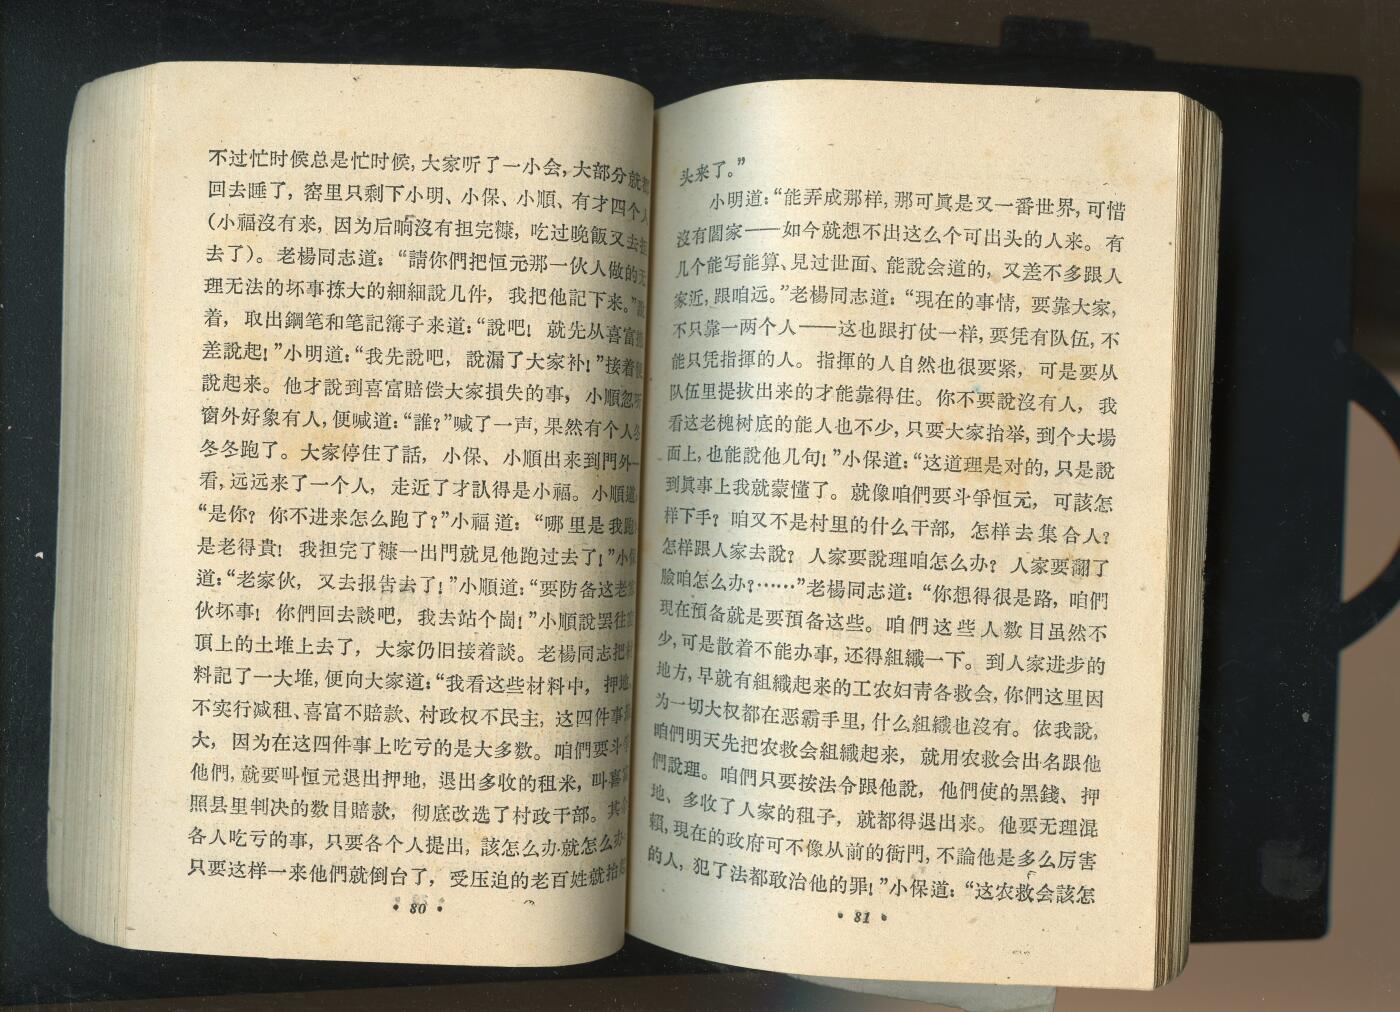 不过忙时候总是忙时候，大家听了一小会，大部分就都
回去睡了，窑里只剩下小明、小保、小順、有才四个人
（小福沒有来，因为后晌沒有担完糠，吃过晚飯又去担
去了）。老楊同志道：“請你們把恒元那一伙人做的无
理无法的坏事拣大的細細說几件，我把他記下来。”說
着，取出鋼笔和笔記簿子来道：“說吧！就先从喜富
差說起！”小明道：“我先說吧，說漏了大家补！”接着便
說起来。他才說到喜富賠偿大家損失的事，小順忽听
窗外好象有人，便喊道：“誰？”喊了一声，果然有个人冬
冬冬跑了。大家停住了話，小保、小順出来到門外一
看，远远来了一个人，走近了才認得是小福。小順道：
“是你？你不进来怎么跑了？”小福道：“哪里是我跑？
是老得貴！我担完了糠一出門就見他跑过去了！”小保
道：“老家伙，又去报告去了！”小順道：“要防备这老家
伙坏事！你們回去談吧，我去站个崗！”小順說罢往窑
頂上的土堆上去了，大家仍旧接着談。老楊同志把材
料記了一大堆，便向大家道：“我看这些材料中，押地、
不实行减租、喜富不賠款、村政权不民主，这四件事最
大，因为在这四件事上吃亏的是大多数。咱們要斗爭
他們，就要叫恒元退出押地，退出多收的租米，叫喜富
照县里判决的数目賠款，彻底改选了村政干部。其余
各人吃亏的事，只要各个人提出，該怎么办就怎么办。
只要这样一来他們就倒台了，受压迫的老百姓就抬起
• 80 •
头来了。”
小明道：“能弄成那样，那可眞是又一番世界，可惜
沒有閻家——如今就想不出这么个可出头的人来。有
几个能写能算、見过世面、能說会道的，又差不多跟人
家近，跟咱远。”老楊同志道：“現在的事情，要靠大家，
不只靠一两个人——这也跟打仗一样，要凭有队伍，不
能只凭指揮的人。指揮的人自然也很要紧，可是要从
队伍里提拔出来的才能靠得住。你不要說沒有人，我
看这老槐树底的能人也不少，只要大家抬举，到个大場
面上，也能說他几句！”小保道：“这道理是对的，只是說
到眞事上我就蒙懂了。就像咱們要斗爭恒元，可該怎
样下手？咱又不是村里的什么干部，怎样去集合人？
怎样跟人家去說？人家要說理咱怎么办？人家要翻了
臉咱怎么办？……”老楊同志道：“你想得很是路，咱們
現在預备就是要預备这些。咱們这些人数目虽然不
少，可是散着不能办事，还得組織一下。到人家进步的
地方，早就有組織起来的工农妇青各救会，你們这里因
为一切大权都在恶霸手里，什么組織也沒有。依我說，
咱們明天先把农救会組織起来，就用农救会出名跟他
們說理。咱們只要按法令跟他說，他們使的黑錢、押
地、多收了人家的租子，就都得退出来。他要无理混
賴，現在的政府可不像从前的衙門，不論他是多么厉害
的人，犯了法都敢治他的罪！”小保道：“这农救会該怎
• 81 •